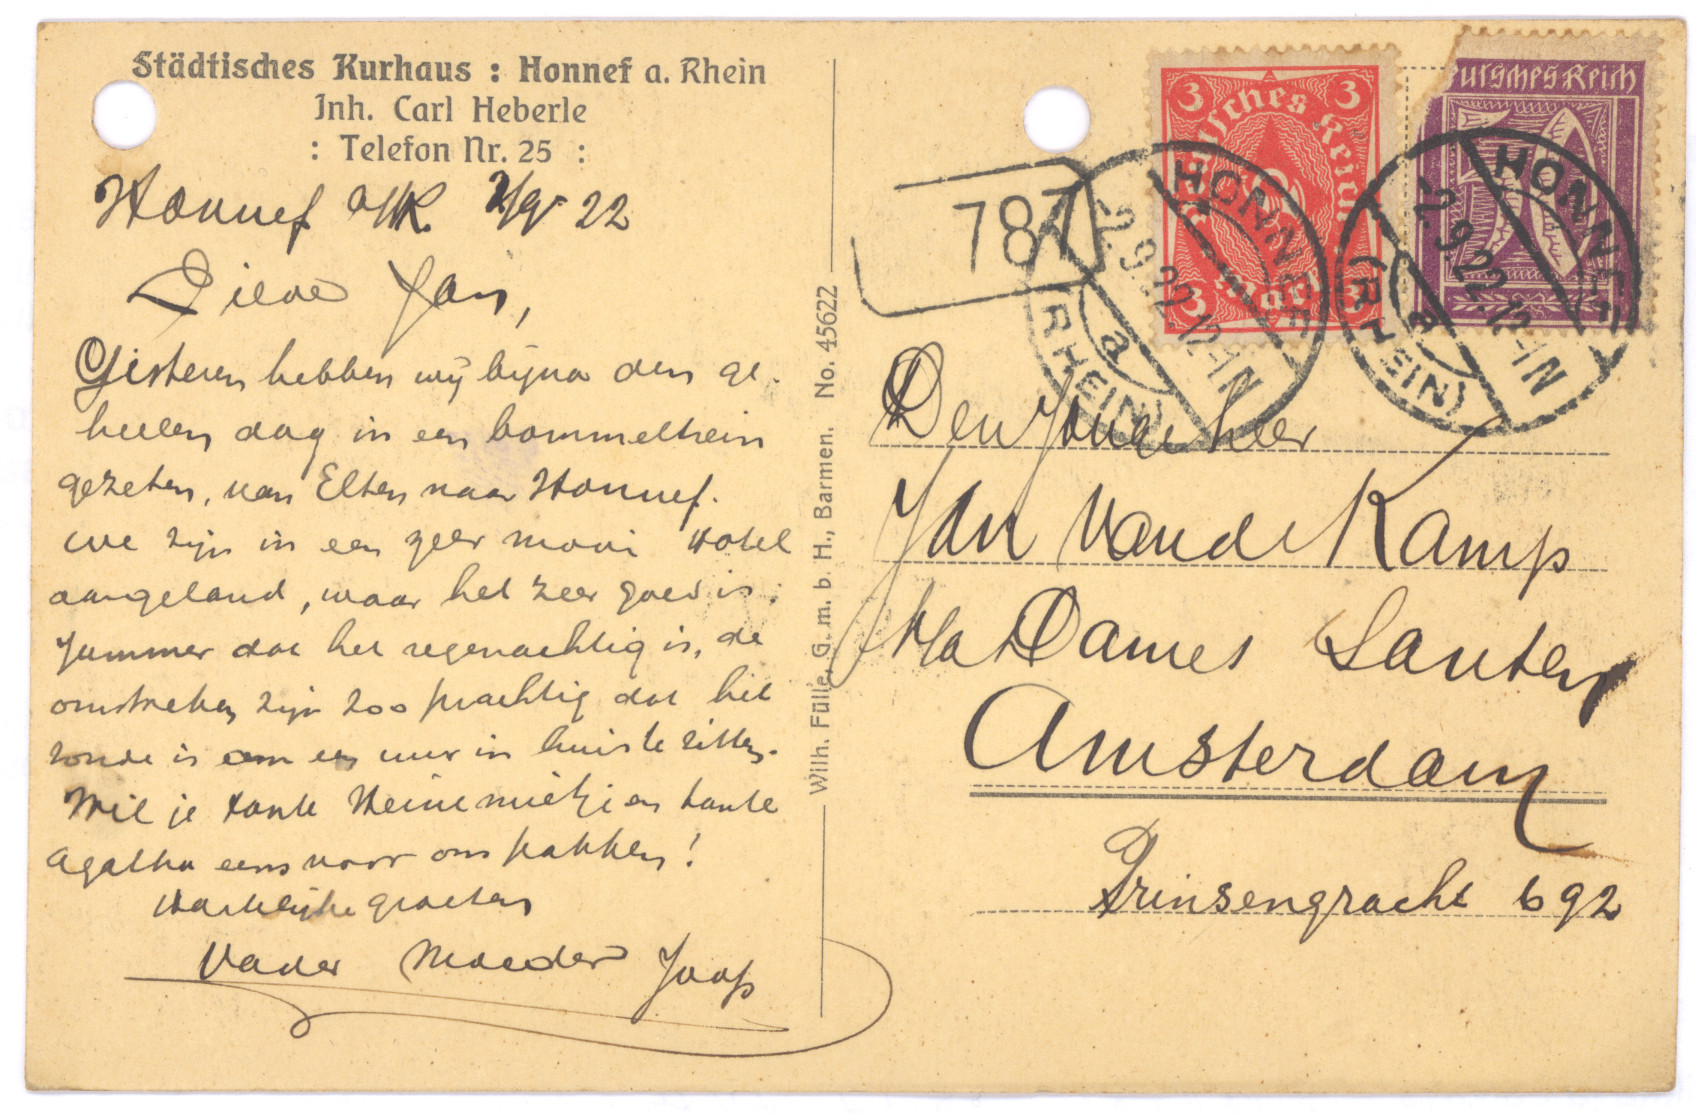 Städtisches Kurhaus : Honnef a. Rhein
Inh. Carl Heberle
: Telefon Nr. 25 :
Honnef a/R. 2/9 22
Lieve Jan,
Gisteren hebben wij bijna den ge-
heelen dag in een bommeltrein
gezeten, van Elten naar Honnef.
We zijn in een zeer mooi Hotel
aangeland, waar het zeer goed is.
Jammer dat het regenachtig is, de
omstreken zijn zoo prachtig dat het
zonde is om een uur in huis te zitten.
Wil je tante Heinemietzi en tante
Agatha eens voor ons pakken!
Hartelijke groeten
Vader Moeder Jaap
Wilh. Fülle, G. m. b. H., Barmen. No. 45622
787
3 Deutsches Reich 3
3 Mark 3
Deutsches Reich
HONNEF
-2.9.22.12-1N
a
(RHEIN)
HONNEF
-2.9.22.12-1N
a
(RHEIN)
Den Jongeheer
Jan van de Kamp
Dames Santen
Amsterdam
Prinsengracht 692